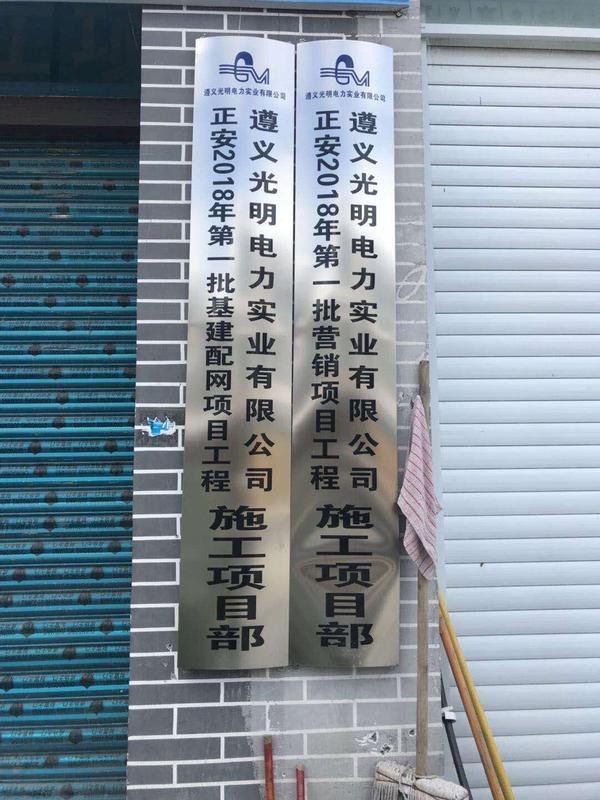 GM
遵义光明电力实业有限公司
遵义光明电力实业有限公司
正安2018年第一批基建配网项目工程
施工项目部
GM
遵义光明电力实业有限公司
遵义光明电力实业有限公司
正安2018年第一批营销项目工程
施工项目部